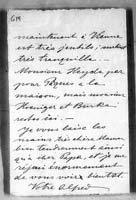 maintenant à Vienne
est très gentils, surtout
très tranquille.
Monsieur Heyda par
pour à la
maison, mais monsieur
Heniger et Burke
restes ici. —
Je vous baise les
mains très chère Maman
bien tendrement ainsi
qu'à cher Papa, et me
réjoui énormément
de vous voir bientôt.
Votre Alfred